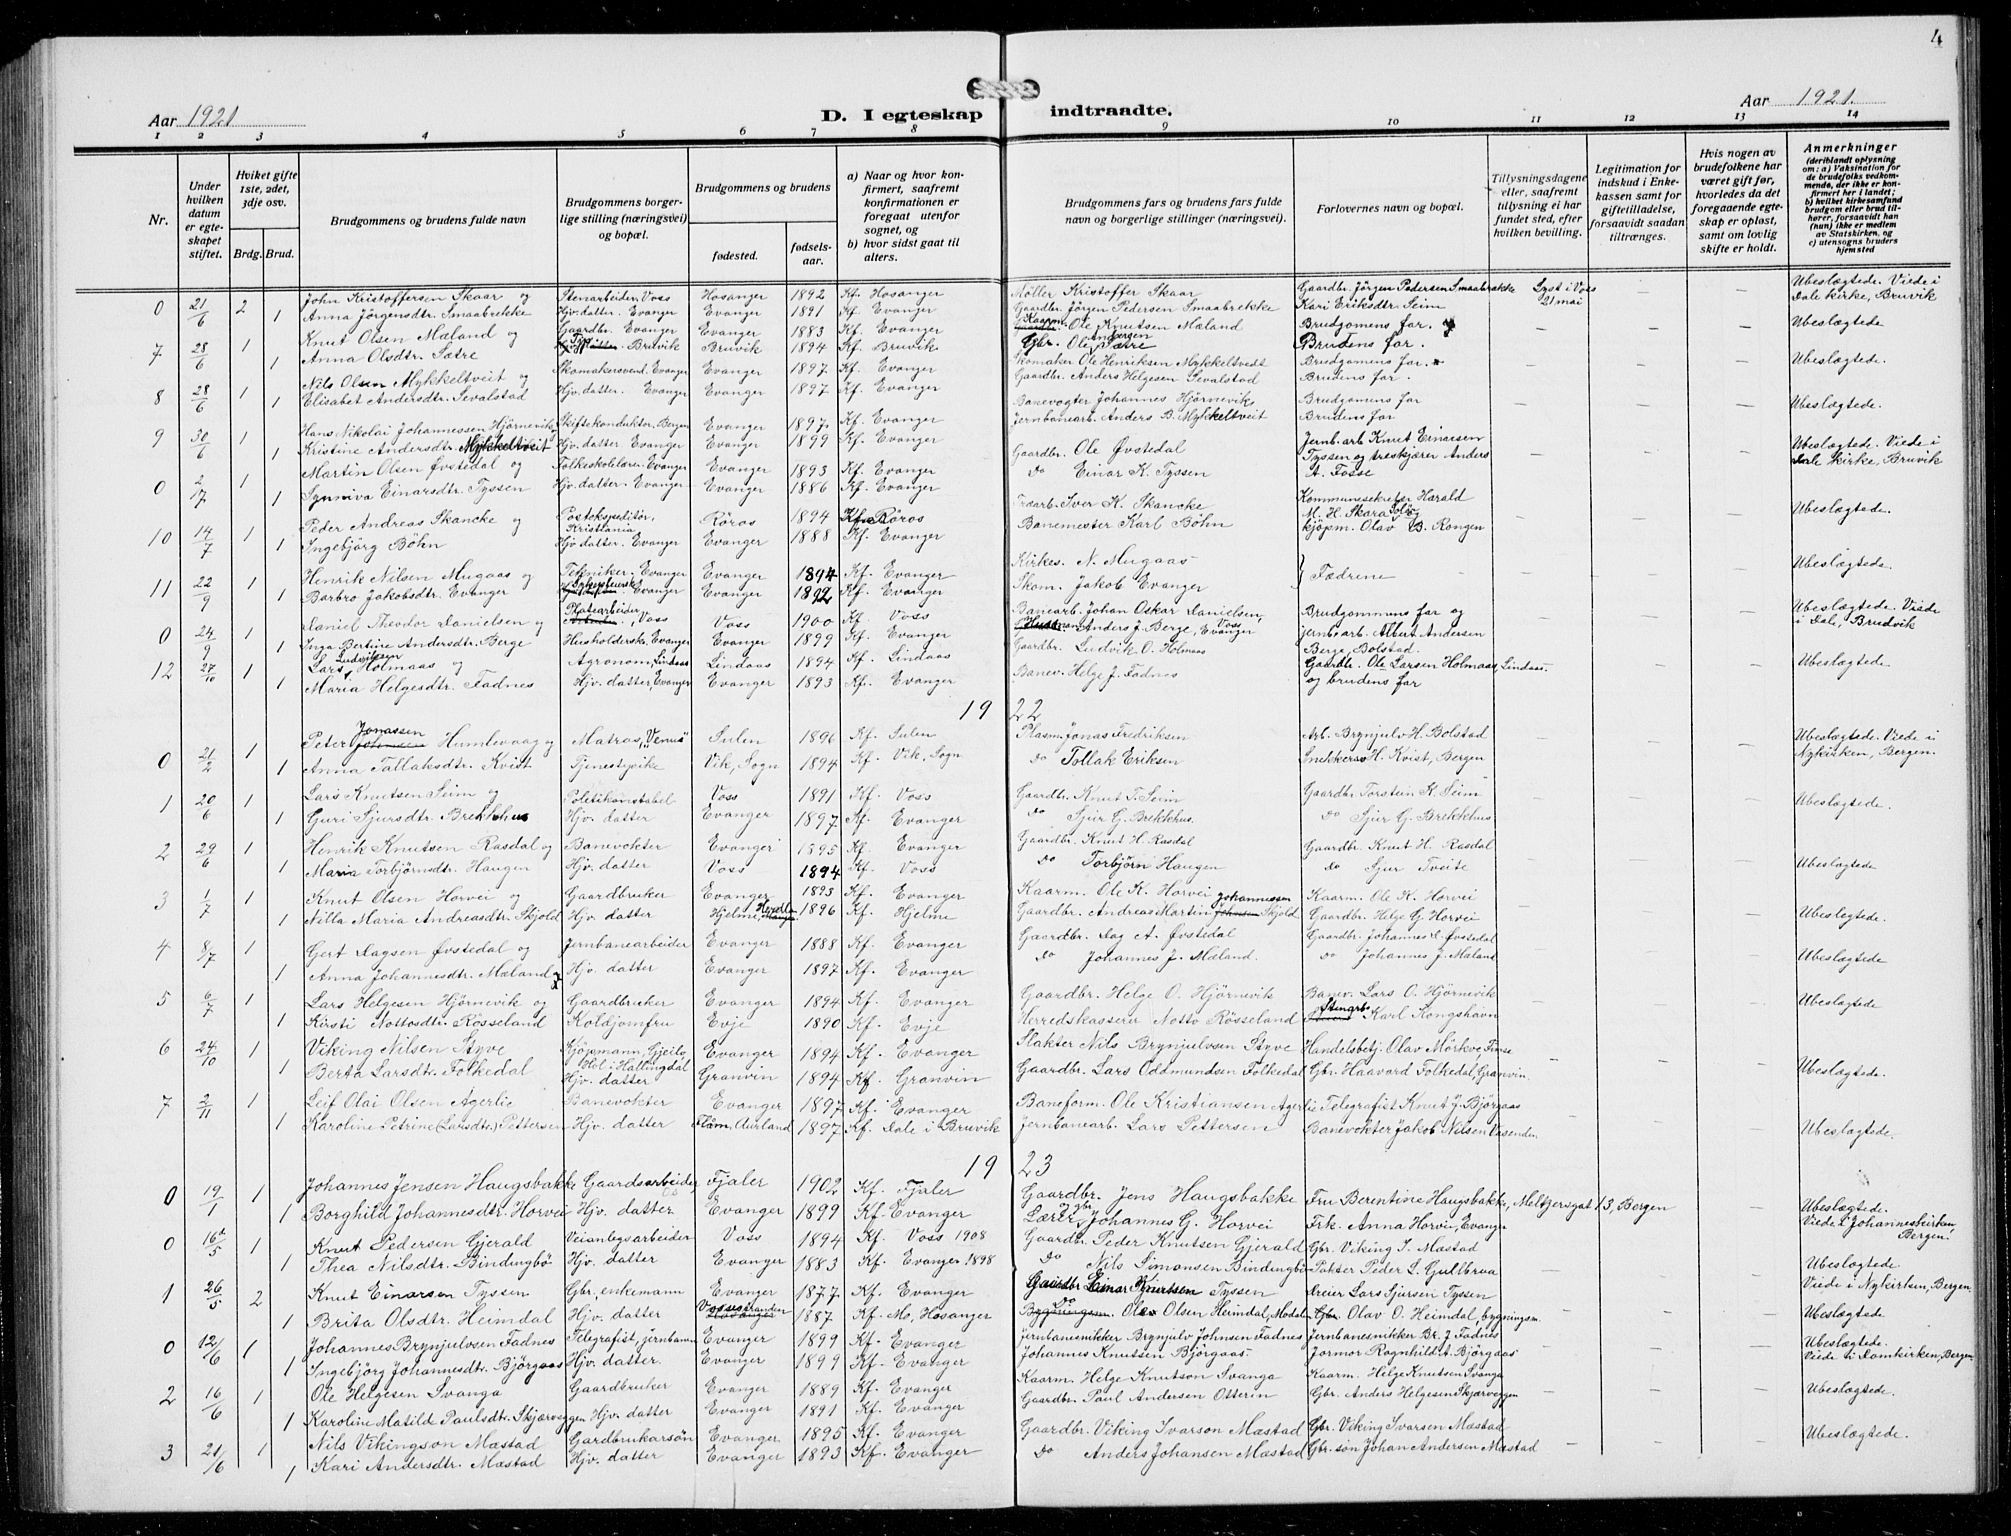 4
Aar 1921
D. I egteskap indtraadte.
Aar 1921.
1 2 3 4 5 6 7 8 9 10 11 12 13 14
Nr.
Under hvilken datum er egteskapet stiftet.
Hviket gifte 1ste, 2det, 3dje osv.
Brdg. Brud.
Brudgommens og brudens fulde navn
Brudgommens borgerlige stilling (næringsvei) og bopæl.
Brudgommens og brudens
fødested.
fødselsaar.
a) Naar og hvor konfirmert, saafremt konfirmationen er foregaat utenfor sognet, og
b) hvor sidst gaat til alters.
Brudgommens fars og brudens fars fulde navn og borgerlige stillinger (næringsvei).
Forlovernes navn og bopæl.
Tillysningsdagene eller, saafremt tillysning ei har fundet sted, efter hvilken bevilling.
Legitimation for indskud i Enkekassen samt for giftetilladelse, forsaavidt saadan tiltrænges.
Hvis nogen av brudefolkene har været gift før, hvorledes da det foregaaende egteskap er opløst, samt om lovlig skifte er holdt.
Anmerkninger
(deriblandt oplysning om: a) Vaksination for de brudefolks vedkommende, der ikke er konfirmert her i landet; b) hvilket kirkesamfund brudgom eller brud tilhører, forsaavidt han (hun) ikke er medlem av Statskirken, og c) utensogns bruders hjemsted
0 21/6 2 John Kristoffersen Skaar og Stenarbeider, Voss Hosanger 1892 Kf. Hosanger Møller Kristoffer Skaar Gaardbr. Jörgen Pedersen Smaabrække Lyst i Voss 21 mai Ubeslægtede. Viede i Dale kirke, Bruvik
1 Anna Jörgensdtr. Smaabrekke Hjv. datter. Evanger Evanger 1891 Kf. Evanger Gaardbr. Jörgen Pedersen Smaabrekke Kari Eriksdtr. Seim
7 28/6 1 Knut Olsen Mæland og Gaardbr. Evanger Evanger 1883 Kf. Evanger Kaarm. Ole Knutsen Mæland Brudgomens far. og Ubeslægtede
1 Anna Olsdtr. Sætre Bruvik Bruvik 1894 Kf. Bruvik Gbr. Ole Andersen Sætre Brudens far.
8 28/6 1 Nils Olsen Mykkeltveit og Skomakersvend. Evanger Evanger 1897 Kf. Evanger Skomaker Ole Henriksen Mykkeltvedt Brudgomens far. Ubeslægtede.
1 Elisabet Andersdtr. Sevalstad Hjv. datter. Evanger Evanger 1897 Kf. Evanger Gaardbr. Anders Helgesen Sevalstad Brudens far.
9 30/6 1 Hans Nikolai Johannessen Hjörnevik Skiftekonduktør. Bergen Evanger 1897 Kf. Evanger Banevogter Johannes Hjörnevik Brudgomens far Ubeslægtede.
1 Kristine Andersdtr. Mykkeltveit Hjv. datter Evanger Evanger 1899 Kf. Evanger Jernbanearb. Anders B. Mykkeltveit Brudens far
0 2/7 1 Martin Olsen Øvstedal og Folkeskolelærer. Evanger Evanger 1893 Kf. Evanger Gaardbr. Ole Øvstedal Jernb. arb. Knut Einarsen Tyssen og treskjærer Anders A. Fosse Ubeslægtede. Viede i Dale kirke, Bruvik
1 Synniva Einarsdtr. Tyssen Hjv. datter. Evanger Evanger 1886 Kf. Evanger do Einar K. Tyssen
10 14/7 1 Peder Andreas Skancke og Postekspeditör, Kristiania Röros 1894 Kf. Röros Iver K. Skancke Kommunesekretær Harald M. H. Skara og Ubeslægtede.
1 Ingebjörg Böhn Hjv. datter. Evanger Evanger 1888 Kf. Evanger Banemester Karl Böhn kjöpm. Olav B. Rongen
11 22/9 1 Henrik Nilsen Mugaas og Tekniker. Evanger Evanger 1894 Kf. Evanger Kirkes. N. Mugaas Fædrene Ubeslægtede.
1 Barbro Jakobsdtr. Evanger Evanger Evanger 1892 Kf. Evanger Skom. Jakob Evanger
0 24/9 1 Daniel Teodor Danielsen og Platearbeider, Voss Voss 1900 Kf. Voss Banearb. Johan Oskar Danielsen, Voss Brudgommens far og Ubeslægtede. Viede i Dale, Brudvik
1 Inga Bertine Andersdtr. Berge Husholdersk. Evanger Evanger 1899 Kf. Evanger Anders J. Berge, Evanger jernb. arb. Albert Andersen Berge, Bolstad
12 27/10 1 Lars Ludviksen Holmaas og Agronom, Lindaas Lindaas 1894 Kf. Lindaas Gaardbr. Ludvik O. Holmaas Gaardbr. Ole Larsen Holmaas, Lindaas. Ubeslægtede
1 Maria Helgesdtr. Fadnes Hjv. datter, Evanger Evanger 1893 Kf. Evanger Banev. Helge J. Fadnes og brudens far
1922
0 21/2 1 Peter Jonassen Humlevaag og Matros, "Venus" Sulen 1896 Kf. Sulen Plasm. Jonas Fredriksen Arb. Brynjulv H. Bolstad Ubeslægtede. Viede i Nykirken, Bergen.
1 Anna Tallaksdtr. Kvist Tjenestepike Vik, Sogn 1894 Kf. Vik, Sogn do Tollak Eriksen Snekker H. Kvist, Bergen
1 20/6 1 Lars Knutsen Seim og Politikonstabel Voss 1891 Kf. Voss Gaardbr. Knut T. Seim Gaardbr Torstein K. Seim Ubeslægtede.
1 Guri Sjursdtr. Brekkhus Hjv. datter Evanger 1897 Kf. Evanger do Sjur G. Brekkhus. do Sjur G. Brekkhus
2 29/6 1 Henrik Knutsen Rasdal og Banevokter Evanger 1895 Kf. Evanger Gaardbr. Knut H. Rasdal Gaardbr. Knut H. Rasdal Ubeslægtede
1 Maria Torbjörnsdtr. Haugen Hjv. datter Voss 1894 Kf. Voss do Torbjörn Haugen do Sjur Tveite
3 1/7 1 Knut Olsen Horvei og Gaardbruker Evanger 1893 Kf. Evanger Kaarm. Ole K. Horvei Kaarm. Ole K. Horvei Ubeslegtede
1 Nilla Maria Andreasdtr. Skjold Hjv. datter Hjelme, Herdla 1896 Kf. Hjelme Gaardbr. Andreas Martin Johannessen Skjold Gaardbr. Helge G. Horvei
4 8/7 1 Gert Dagsen Øvstedal og Jernbanearbeider Evanger 1888 Kf. Evanger Gaardbr. Dag A. Øvstedal Gaardbr. Johannes D. Øvstedal Ubeslægtede
1 Anna Johannesdtr. Mæland Hjv. datter Evanger 1897 Kf. Evanger do Johannes J. Mæland. do Johannes J. Mæland
5 6/7 1 Lars Helgesen Hjörnevik og Gaardbruker Evanger 1894 Kf. Evanger Gaardbr. Helge O. Hjörnevik Banev. Lars O. Hjörnevik Ubeslægtede
1 Kirsti Nottosdtr. Rösseland Koldjomfru Evje 1890 Kf. Evje Herredskasserer Notto Rösseland Stenarb. Karl Kongshavn
6 24/10 1 Viking Nilsen Styve Kjöpmann, Gjeilo, Hol i Hallingdal Evanger 1894 Kf. Evanger Slakter Nils Brynjulvsen Styve Handelsbetj. Olav Mörkve, Finse Ubeslægtede.
1 Berta Larsdtr. Folkedal Hjv. datter Granvin 1894 Kf. Granvin Gaardbr. Lars Oddmundsen Folkedal Gbr. Haavard Folkedal, Granvin
7 2/11 1 Leif Olai Olsen Agerlie Banevokter Evanger 1897 Kf. Evanger Baneform. Ole Kristiansen Agerlie Telegrafist Knut J. Björgaas Ubeslægtede.
1 Karoline Petrine (Larsdtr.) Pettersen Hjv. datter Flåm, Aurland 1897 Kf. Dale i Bruvik Jernbanearb. Lars Pettersen Banevokter Jakob Nilsen Vasenden
1923
0 19/1 1 Johannes Jensen Haugsbakke Gaardsarbeider Fjaler 1902 Kf. Fjaler Gaardbr. Jens Haugsbakke Fru Berentine Haugsbakke, Meltzersgat 13, Bergen Ubeslægtede. Viede i Johanneskirken, Bergen.
1 Borghild Johannesdtr. Horvei Hjv. datter Evanger 1899 Kf. Evanger Lærer, gbr. Johannes G. Horvei Frk. Anna Horvei, Evanger
0 16/5 1 Knut Pedersen Gjerald Veianlegsarbeider Voss 1894 Kf. Voss 1908 Gaardbr. Peder Knutsen Gjerald Gbr. Viking I. Mæstad Ubeslægtede
1 Thea Nilsdtr. Bindingbö Hjv. datter Evanger 1883 Kf. Evanger 1898 do Nils Simonsen Bindingbö Pakter Peder L. Gulbraa Viede i Nykirken, Bergen
1 26/5 2 Knut Einarsen Tyssen Gbr., enkemann Evanger 1877 Kf. Evanger Gaardbr Einar Knutsen Tyssen Dreier Lars Sjursen Tyssen Ubeslægtede
1 Brita Olsdtr. Heimdal Hjv. datter Vossestranden 1887 Kf. Mo, Hosanger Ole Olsen Heimdal, Modalen Gbr. Olav O. Heimdal, bygningsm.
0 12/6 1 Johannes Brynjulvsen Fadnes Telegrafist, jernbanen Evanger 1899 Kf. Evanger Jernbanesnikker Brynjulv Johnsen Fadnes Jernbanesnikker Br. J. Fadnes Ubeslægtede Viede i Domkirken, Bergen
1 Ingebjörg Johannesdtr. Björgaas Hjv. datter. Evanger 1899 Kf. Evanger Johannes Knutsen Björgaas Jormor Ragnhild A. Björgaas
2 16/6 1 Ole Helgesen Svanga Gaardbruker Evanger 1889 Kf. Evanger Kaarm. Helge Knutson Svanga Kaarm. Helge Knutsen Svanga Ubeslægtede.
1 Karoline Matilde Paulsdtr. Skjærveggen Hjv. datter Evanger 1891 Kf. Evanger Gaardbr. Paul Andersen Otterin Gbr. Anders Helgesen Skjærveggen
3 21/6 1 Nils Vikingson Mæstad Gardbrukarsön Evanger 1895 Kf. Evanger Gaardbr. Viking Ivarson Mæstad Gbr. Viking Ivarsen Mæstad Ubeslægtede.
1 Kari Andersdtr. Mæstad Hjv. datter Evanger 1893 Kf. Evanger do Anders Johansen Mæstad Gbr. sön Johan Andersen Mæstad